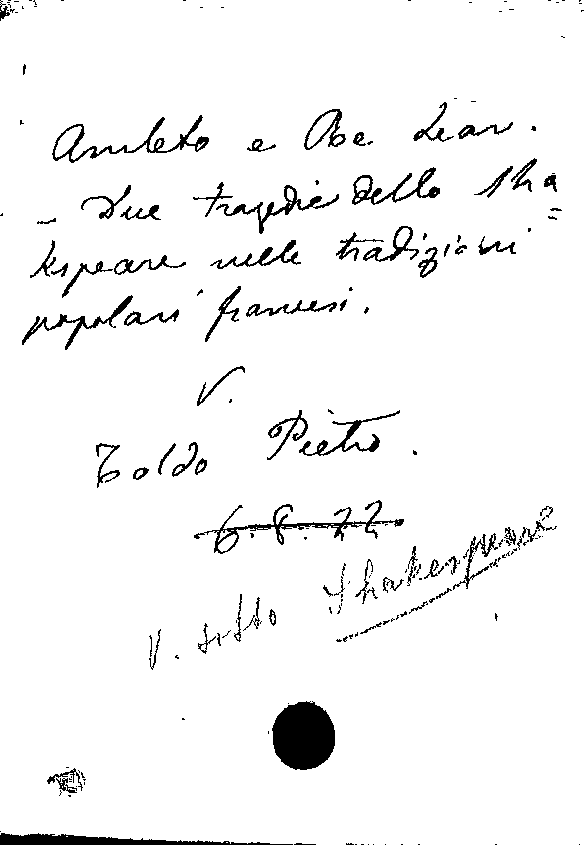 Amleto e Re Lear.
- Due tragedie dello Sha=
kespeare nelle tradizioni
popolari francesi.
V.
Toldo Pietro.
6.8.22.
V. sotto Shakespeare